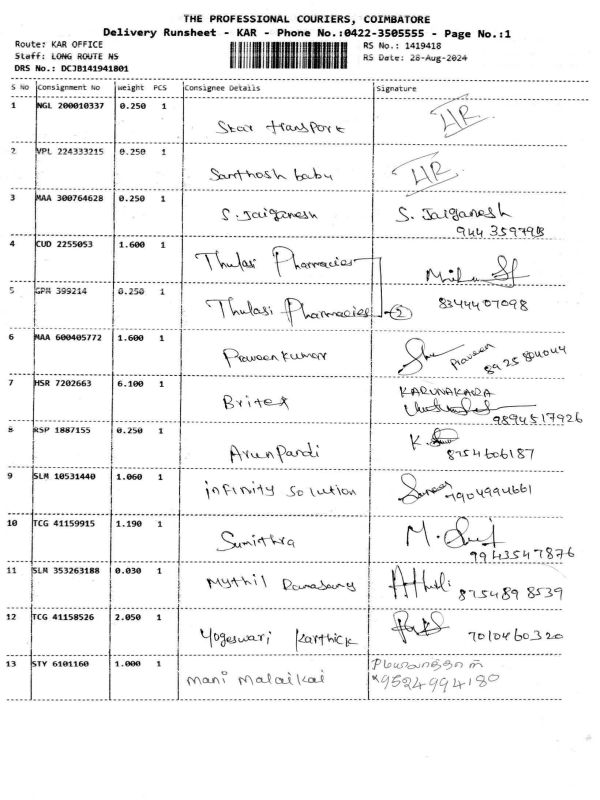 THE PROFESSIONAL COURIERS, COIMBATORE
Delivery Runsheet - KAR - Phone No.:0422-3505555 - Page No.:1
Route: KAR OFFICE RS No.: 1419418
Staff: LONG ROUTE NS RS Date: 28-Aug-2024
DRS No.: DCJB141941801
S No Consignment No Weight PCS Consignee Details Signature
1 NGL 200010337 0.250 1
Star transport
2 VPL 224333215 0.250 1
Santhosh babu
3 MAA 300764628 0.250 1
S. Jaiganesh S. Jaiganesh
4 CUD 2255053 1.600 1
Thulasi Pharmacies
5 GPM 399214 0.250 1
Thulasi Pharmacies 2 8344407098
6 MAA 600405772 1.600 1
Praveen kumar Praveen
7 HSR 7202663 6.100 1 KARUNAKARA
Britex 9894517926
8 RSP 1887155 0.250 1 K.
Arun Pandi 8754606187
9 SLM 10531440 1.060 1
infinity solution 7904994661
10 TCG 41159915 1.190 1 M.
Sumithra 9943547876
11 SLM 353263188 0.030 1
Mythil 8754898539
12 TCG 41158526 2.050 1
Yogeswari Karthick 7010460320
13 STY 6101160 1.000 1
Mani Malaikai 9524994180